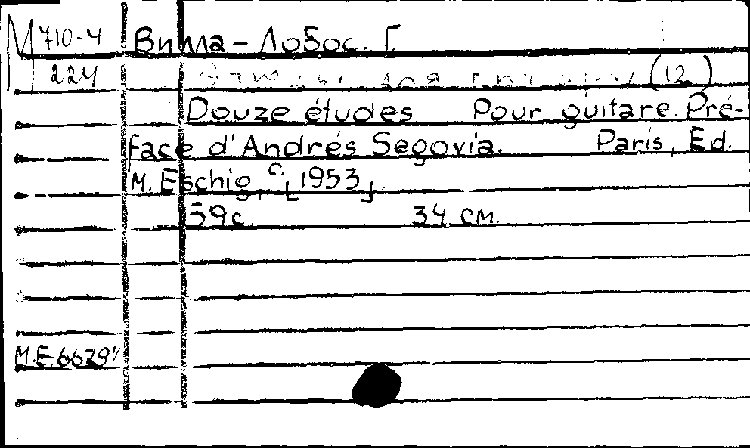 М 710-4 Вилла-Лобос. Г.
224 (12)
Douze études Pour guitare. Pré-
face d'Andrés Segovia. Paris, Ed.
M. Eschig, c [1953]
59с. 34 см.
M.E.6629